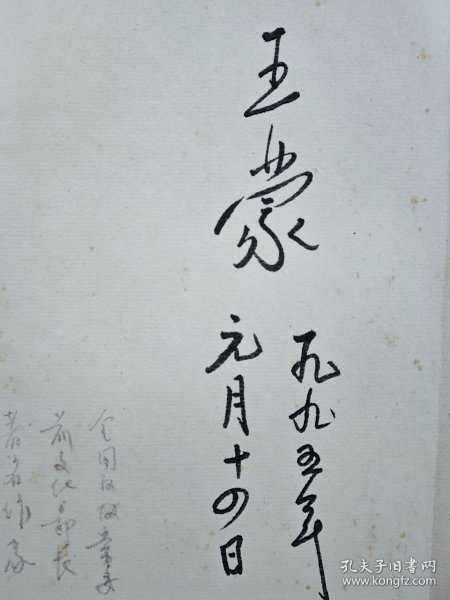 王蒙
一九九五年
元月十四日
全国政协常委
前文化部长
著名作家
孔夫子旧书网
www.kongfz.com